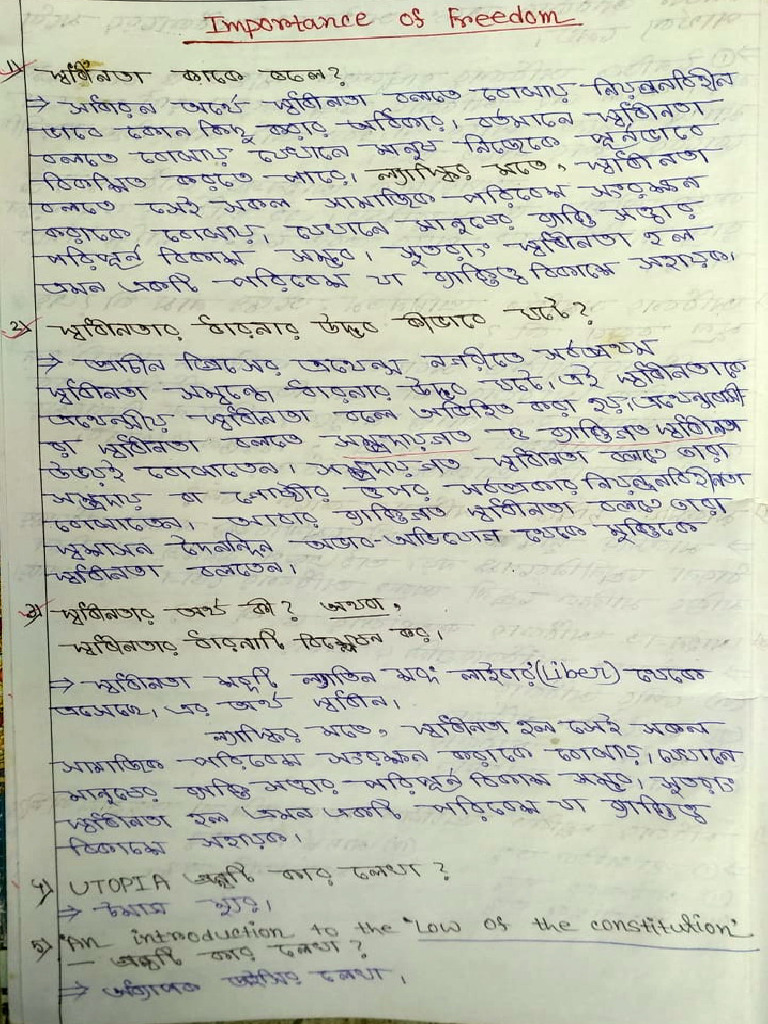 Importance of Freedom
1) স্বাধীনতা কাকে বলে?
⇒ সাধারন অর্থে স্বাধীনতা বলতে বোঝায় নিয়ন্ত্রনবিহীন
ভাবে কোন কিছু করার অধিকার। বর্তমানে স্বাধীনতা
বলতে বোঝায় যেখানে মানুষ নিজেকে পূর্নভাবে
বিকশিত করতে পারে। ল্যাস্কির মতে, স্বাধীনতা
বলতে সেই সকল সামাজিক পরিবেশ সংরক্ষন
করাকে বোঝায়, যেখানে মানুষের ব্যক্তি সত্তার
পরিপূর্ন বিকাশ সম্ভব। সুতরাং স্বাধীনতা হল
এমন একটি পরিবেশ যা ব্যক্তিত্ব বিকাশে সহায়ক।
2) স্বাধীনতার ধারনার উদ্ভব কীভাবে ঘটে?
⇒ প্রাচীন গ্রিসের এথেন্স নগরীতে সর্বপ্রথম
স্বাধীনতা সম্বন্ধে ধারনার উদ্ভব ঘটে, এই স্বাধীনতাকে
এথেন্সীয় স্বাধীনতা বলে অভিহিত করা হয়। এথেন্সবাসী
রা স্বাধীনতা বলতে সম্প্রদায়গত ও ব্যক্তিগত স্বাধীনতা
উভয়ই বোঝাতেন। সম্প্রদায়গত স্বাধীনতা বলতে তারা
সম্প্রদায় বা গোষ্ঠীর ওপর সর্বপ্রকার নিয়ন্ত্রনবিহীনতা
বোঝাতেন। আবার ব্যক্তিগত স্বাধীনতা বলতে তারা
স্বশাসন দৈনন্দিন অভাব-অভিযোগ থেকে মুক্তিকে
স্বাধীনতা বলতেন।
3) স্বাধীনতার অর্থ কী? অথবা,
স্বাধীনতার ধারনাটি বিশ্লেষন কর।
⇒ স্বাধীনতা শব্দটি ল্যাতিন শব্দ লাইবার (Liber) থেকে
এসেছে, এর অর্থ স্বাধীন।
ল্যাস্কির মতে, স্বাধীনতা হল সেই সকল
সামাজিক পরিবেশ সংরক্ষন করাকে বোঝায়, যেখানে
মানুষের ব্যক্তি সত্তার পরিপূর্ন বিকাশ সম্ভব। সুতরাং
স্বাধীনতা হল এমন একটি পরিবেশ যা ব্যক্তিত্ব
বিকাশে সহায়ক।
4) UTOPIA গ্রন্থটি কার লেখা?
⇒ টমাস মুর।
5) "An introduction to the "Low of the constitution"
— গ্রন্থটি কার লেখা?
⇒ অধ্যাপক ডাইসির লেখা।